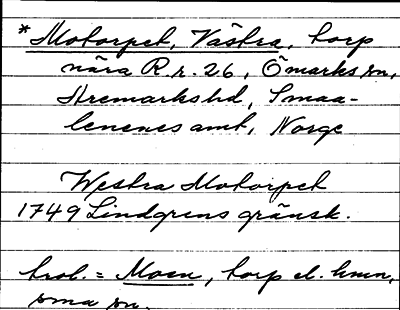 * Motorpet, Västra, torp
nära R.r. 26, Ömarks sn,
Aremarks hd, Smaa-
lenenes amt, Norge
Westra Motorpet
1749 Lindgrens gränsk.
trol. = Moen, torp el. hmn,
sma sn.